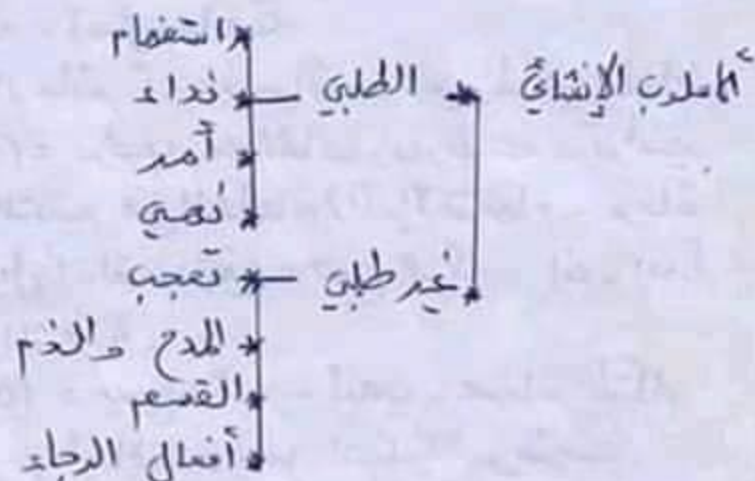 أسلوب الإنشائي
الطلبي
استفهام
نداء
أمر
نهي
غير طلبي
تعجب
المدح والذم
القسم
أفعال الرجاء